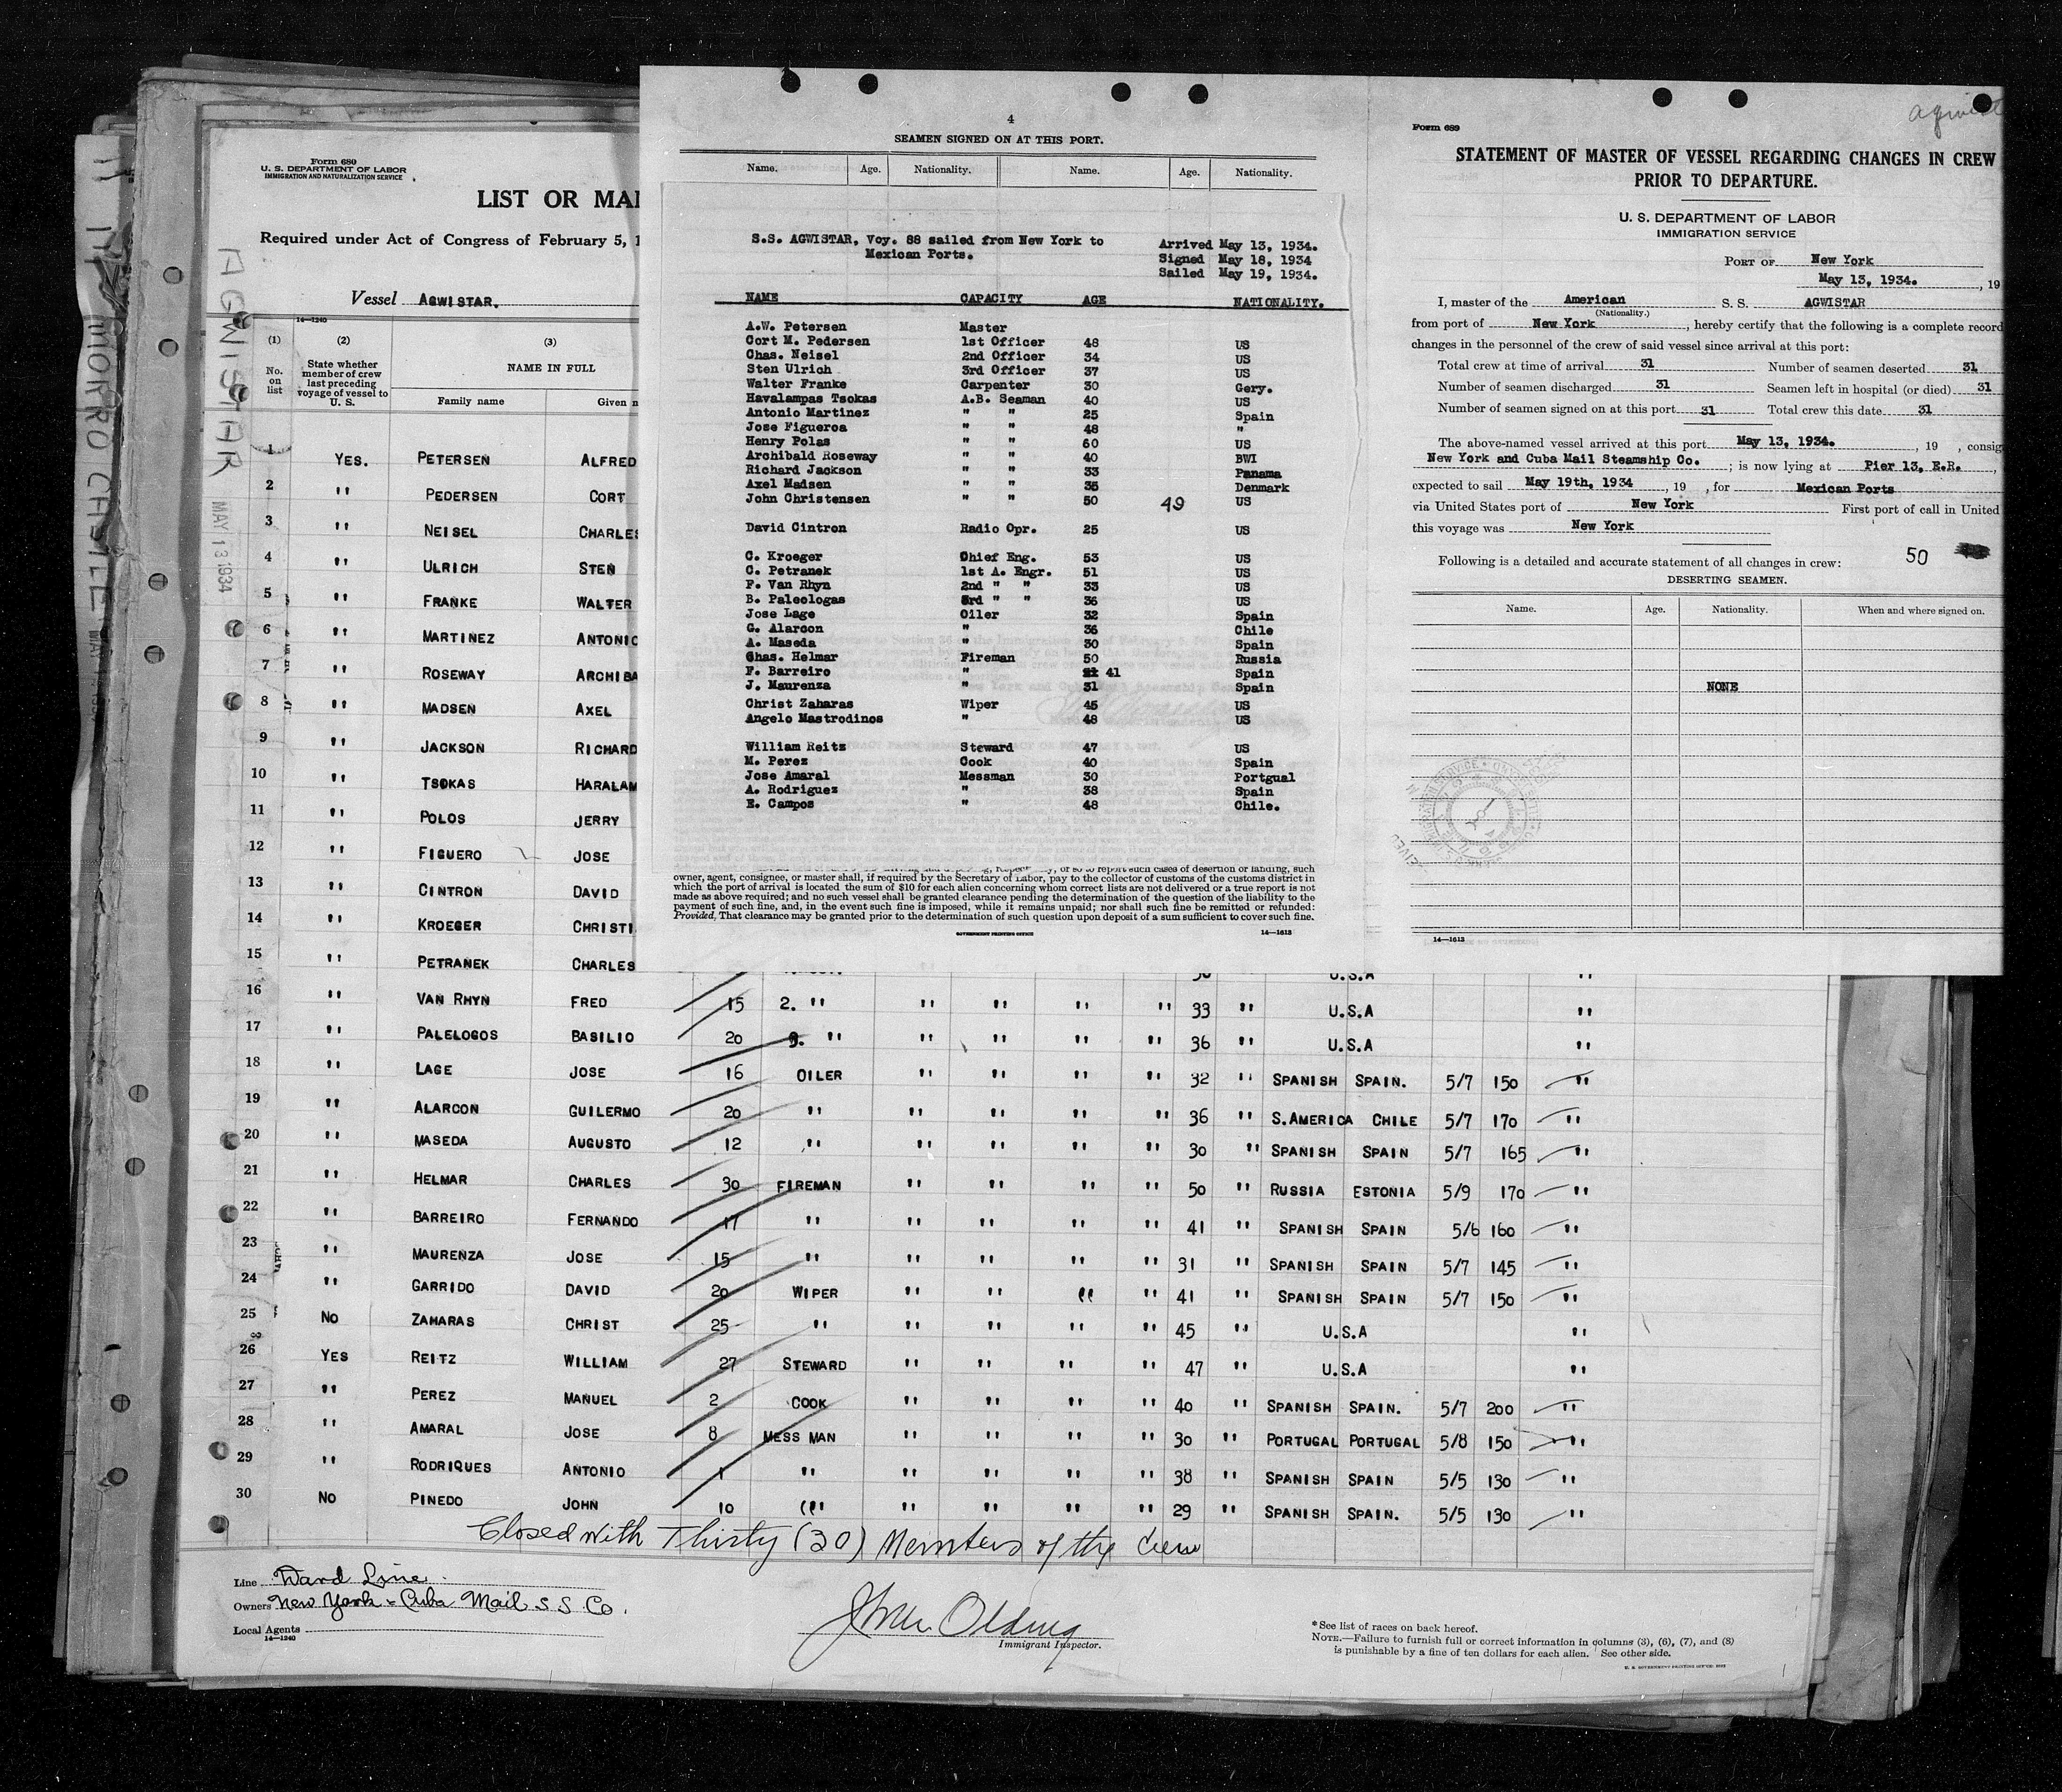 Form 689
U. S. DEPARTMENT OF LABOR
IMMIGRATION AND NATURALIZATION SERVICE
LIST OR
Required under Act of Congress of February 5,
Vessel AGWISTAR.
14—1240
(1) (2) (3)
No. on list
State whether member of crew last preceding voyage of vessel to U. S.
NAME IN FULL
Family name
AGWISTAR
MAY 13 1934
MORRO CASTLE
1 YES. PETERSEN ALFRED
2 " PEDERSEN CORT
3 " NEISEL CHARLES
4 " ULRICH STEN
5 " FRANKE WALTER
6 " MARTINEZ ANTONIO
7 " ROSEWAY ARCHIBA
8 " MADSEN AXEL
9 " JACKSON RICHARD
10 " TSOKAS HARALAM
11 " POLOS JERRY
12 " FIGUERO JOSE
13 " CINTRON DAVID
14 " KROEGER CHRISTI
15 " PETRANEK CHARLES U.S.A
16 " VAN RHYN FRED 15 2. " " " " " 33 " U.S.A "
17 " PALELOGOS BASILIO 20 3. " " " " " 36 " U.S.A "
18 " LAGE JOSE 16 OILER " " " " 32 " SPANISH SPAIN. 5/7 150 "
19 " ALARCON GUILERMO 20 " " " " " 36 " S.AMERICA CHILE 5/7 170 "
20 " MASEDA AUGUSTO 12 " " " " " 30 " SPANISH SPAIN 5/7 165 "
21 " HELMAR CHARLES 30 FIREMAN " " " " 50 " RUSSIA ESTONIA 5/9 170 "
22 " BARREIRO FERNANDO 17 " " " " " 41 " SPANISH SPAIN 5/6 160 "
23 " MAURENZA JOSE 15 " " " " " 31 " SPANISH SPAIN 5/7 145 "
24 " GARRIDO DAVID 20 WIPER " " " " 41 " SPANISH SPAIN 5/7 150 "
25 No ZAHARAS CHRIST 25 " " " " " 45 " U.S.A "
26 YES REITZ WILLIAM 27 STEWARD " " " " 47 " U.S.A "
27 " PEREZ MANUEL 2 COOK " " " " 40 " SPANISH SPAIN. 5/7 200 "
28 " AMARAL JOSE 8 MESS MAN " " " " 30 " PORTUGAL PORTUGAL 5/8 150 "
29 " RODRIQUES ANTONIO 1 " " " " " 38 " SPANISH SPAIN 5/5 130 "
30 No PINEDO JOHN 10 " " " " " 29 " SPANISH SPAIN. 5/5 130 "
Closed with Thirty (30) Members of the Crew
Line Ward Line
Owners New York - Cuba Mail S S Co.
Local Agents
14—1240
Immigrant Inspector.
* See list of races on back hereof.
NOTE.—Failure to furnish full or correct information in columns (3), (6), (7), and (8)
is punishable by a fine of ten dollars for each alien. See other side.
4
SEAMEN SIGNED ON AT THIS PORT.
Name. Age. Nationality. Name. Age. Nationality.
S.S. AGWISTAR, Voy. 88 sailed from New York to
Mexican Ports.
Arrived May 13, 1934.
Signed May 18, 1934
Sailed May 19, 1934.
NAME CAPACITY AGE NATIONALITY.
A.W. Petersen Master
Cort M. Pedersen 1st Officer 48 US
Chas. Neisel 2nd Officer 34 US
Sten Ulrich 3rd Officer 37 US
Walter Franke Carpenter 30 Gery.
Havalampas Tsokas A.B. Seaman 40 US
Antonio Martinez " " 25 Spain
Jose Figueroa " " 48 "
Henry Polas " " 60 US
Archibald Roseway " " 40 BWI
Richard Jackson " " 33 Panama
Axel Madsen " " 35 Denmark
John Christensen " " 50 49 US
David Cintron Radio Opr. 25 US
C. Kroeger Chief Eng. 53 US
C. Petranek 1st A. Engr. 51 US
F. Van Rhyn 2nd " " 33 US
B. Paleologas 3rd " " 36 US
Jose Lage Oiler 32 Spain
G. Alarcon " 36 Chile
A. Maseda " 30 Spain
Chas. Helmar Fireman 50 Russia
F. Barreiro " 41 Spain
J. Maurenza " 31 Spain
Christ Zaharas Wiper 45 US
Angelo Mastrodinos " 48 US
William Reitz Steward 47 US
M. Perez Cook 40 Spain
Jose Amaral Messman 30 Portgual
A. Rodriguez " 38 Spain
E. Campos " 48 Chile.
or so to report such cases of desertion or landing, such
owner, agent, consignee, or master shall, if required by the Secretary of Labor, pay to the collector of customs of the customs district in
which the port of arrival is located the sum of $10 for each alien concerning whom correct lists are not delivered or a true report is not
made as above required; and no such vessel shall be granted clearance pending the determination of the question of the liability to the
payment of such fine, and, in the event such fine is imposed, while it remains unpaid; nor shall such fine be remitted or refunded:
Provided, That clearance may be granted prior to the determination of such question upon deposit of a sum sufficient to cover such fine.
GOVERNMENT PRINTING OFFICE 14—1613
Form 689
STATEMENT OF MASTER OF VESSEL REGARDING CHANGES IN CREW
PRIOR TO DEPARTURE.
U. S. DEPARTMENT OF LABOR
IMMIGRATION SERVICE
PORT OF New York
May 13, 1934. , 19
I, master of the American S. S. AGWISTAR
(Nationality.)
from port of New York, hereby certify that the following is a complete record
changes in the personnel of the crew of said vessel since arrival at this port:
Total crew at time of arrival 31 Number of seamen deserted 31
Number of seamen discharged 31 Seamen left in hospital (or died) 31
Number of seamen signed on at this port 31 Total crew this date 31
The above-named vessel arrived at this port May 13, 1934. , 19 , consig
New York and Cuba Mail Steamship Co. ; is now lying at Pier 13, E.R. ,
expected to sail May 19th, 1934 , 19 , for Mexican Ports
via United States port of New York First port of call in United
this voyage was New York
50
Following is a detailed and accurate statement of all changes in crew:
DESERTING SEAMEN.
Name. Age. Nationality. When and where signed on.
NONE
14—1613